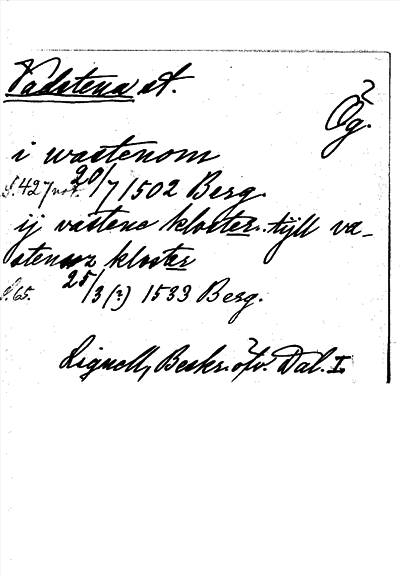 Vadstena st.
Ög.
i wastenom
S. 427 not. 20/7 1502 Berg.
ij vastene kloster. tijll va-
stennz kloster
S. 65. 25/3 (?) 1533 Berg.
Lignell, Beskr. öfv. Dal. I.